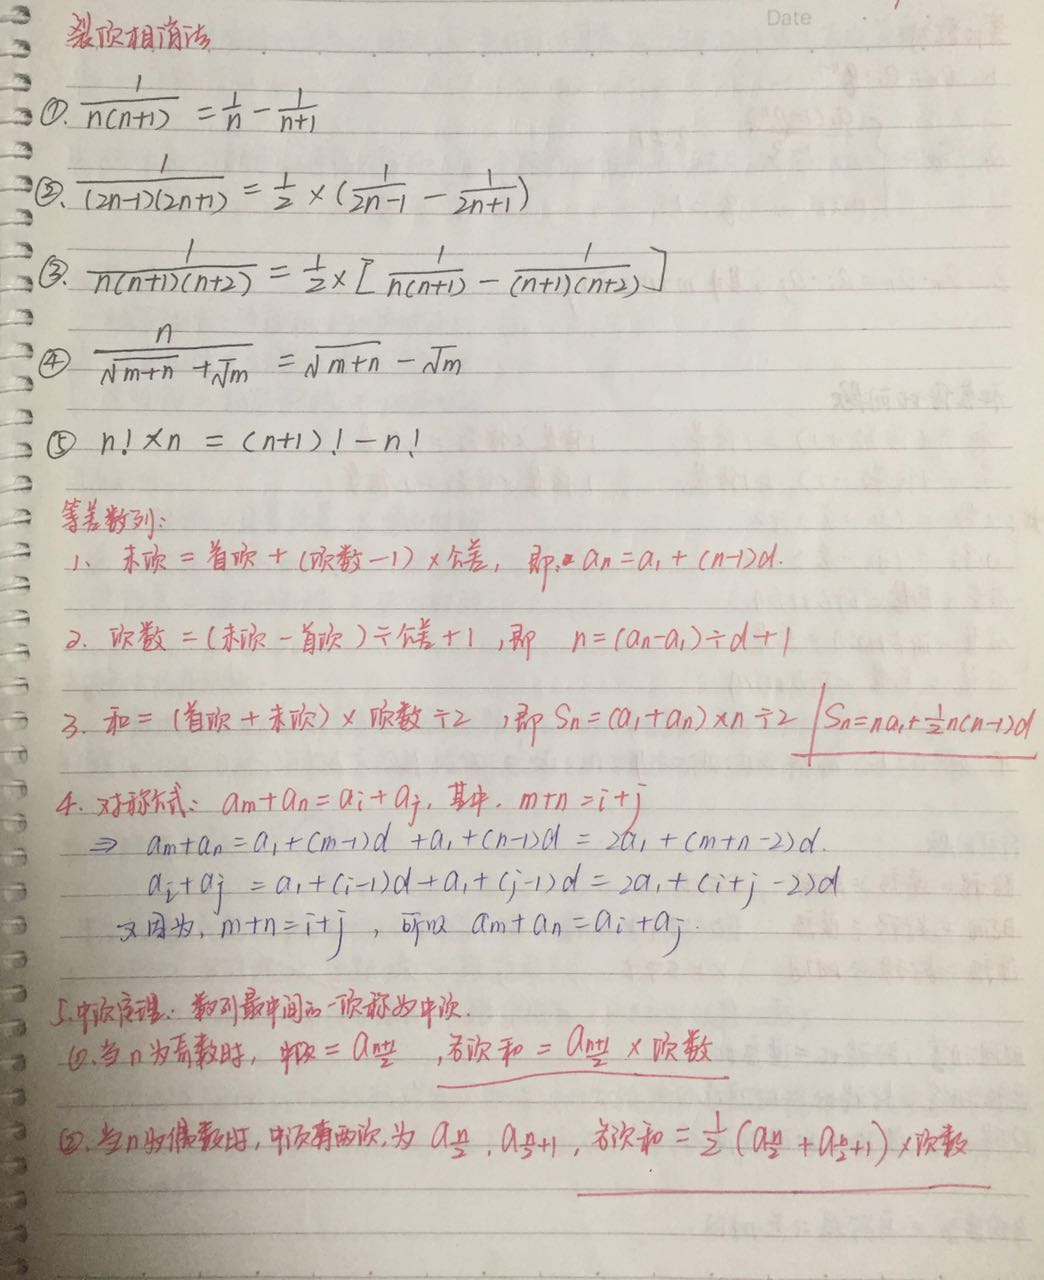 Date
裂项相消法
①. 1/n(n+1) = 1/n - 1/n+1
②. 1/(2n-1)(2n+1) = 1/2 × (1/2n-1 - 1/2n+1)
③. 1/n(n+1)(n+2) = 1/2 × [1/n(n+1) - 1/(n+1)(n+2)]
④ n/√m+n + √m = √m+n - √m
⑤ n! × n = (n+1)! - n!
等差数列:
1、末项 = 首项 + (项数-1) × 公差, 即: an = a1 + (n-1)d.
2. 项数 = (末项 - 首项) ÷ 公差 + 1, 即 n = (an-a1) ÷ d + 1
3. 和 = (首项 + 末项) × 项数 ÷ 2, 即 Sn = (a1+an) × n ÷ 2 | Sn = na1 + 1/2n(n-1)d
4. 对称式: am + an = ai + aj, 其中, m+n = i+j
⇒ am + an = a1 + (m-1)d + a1 + (n-1)d = 2a1 + (m+n-2)d.
ai + aj = a1 + (i-1)d + a1 + (j-1)d = 2a1 + (i+j-2)d
又因为, m+n = i+j, 所以 am + an = ai + aj.
5. 中项定理: 数列最中间的一项称为中项.
①. 当n为奇数时, 中项 = a n+1/2, 各项和 = a n+1/2 × 项数
②. 当n为偶数时, 中项有两项, 为 a n/2, a n/2+1, 各项和 = 1/2 (a n/2 + a n/2+1) × 项数